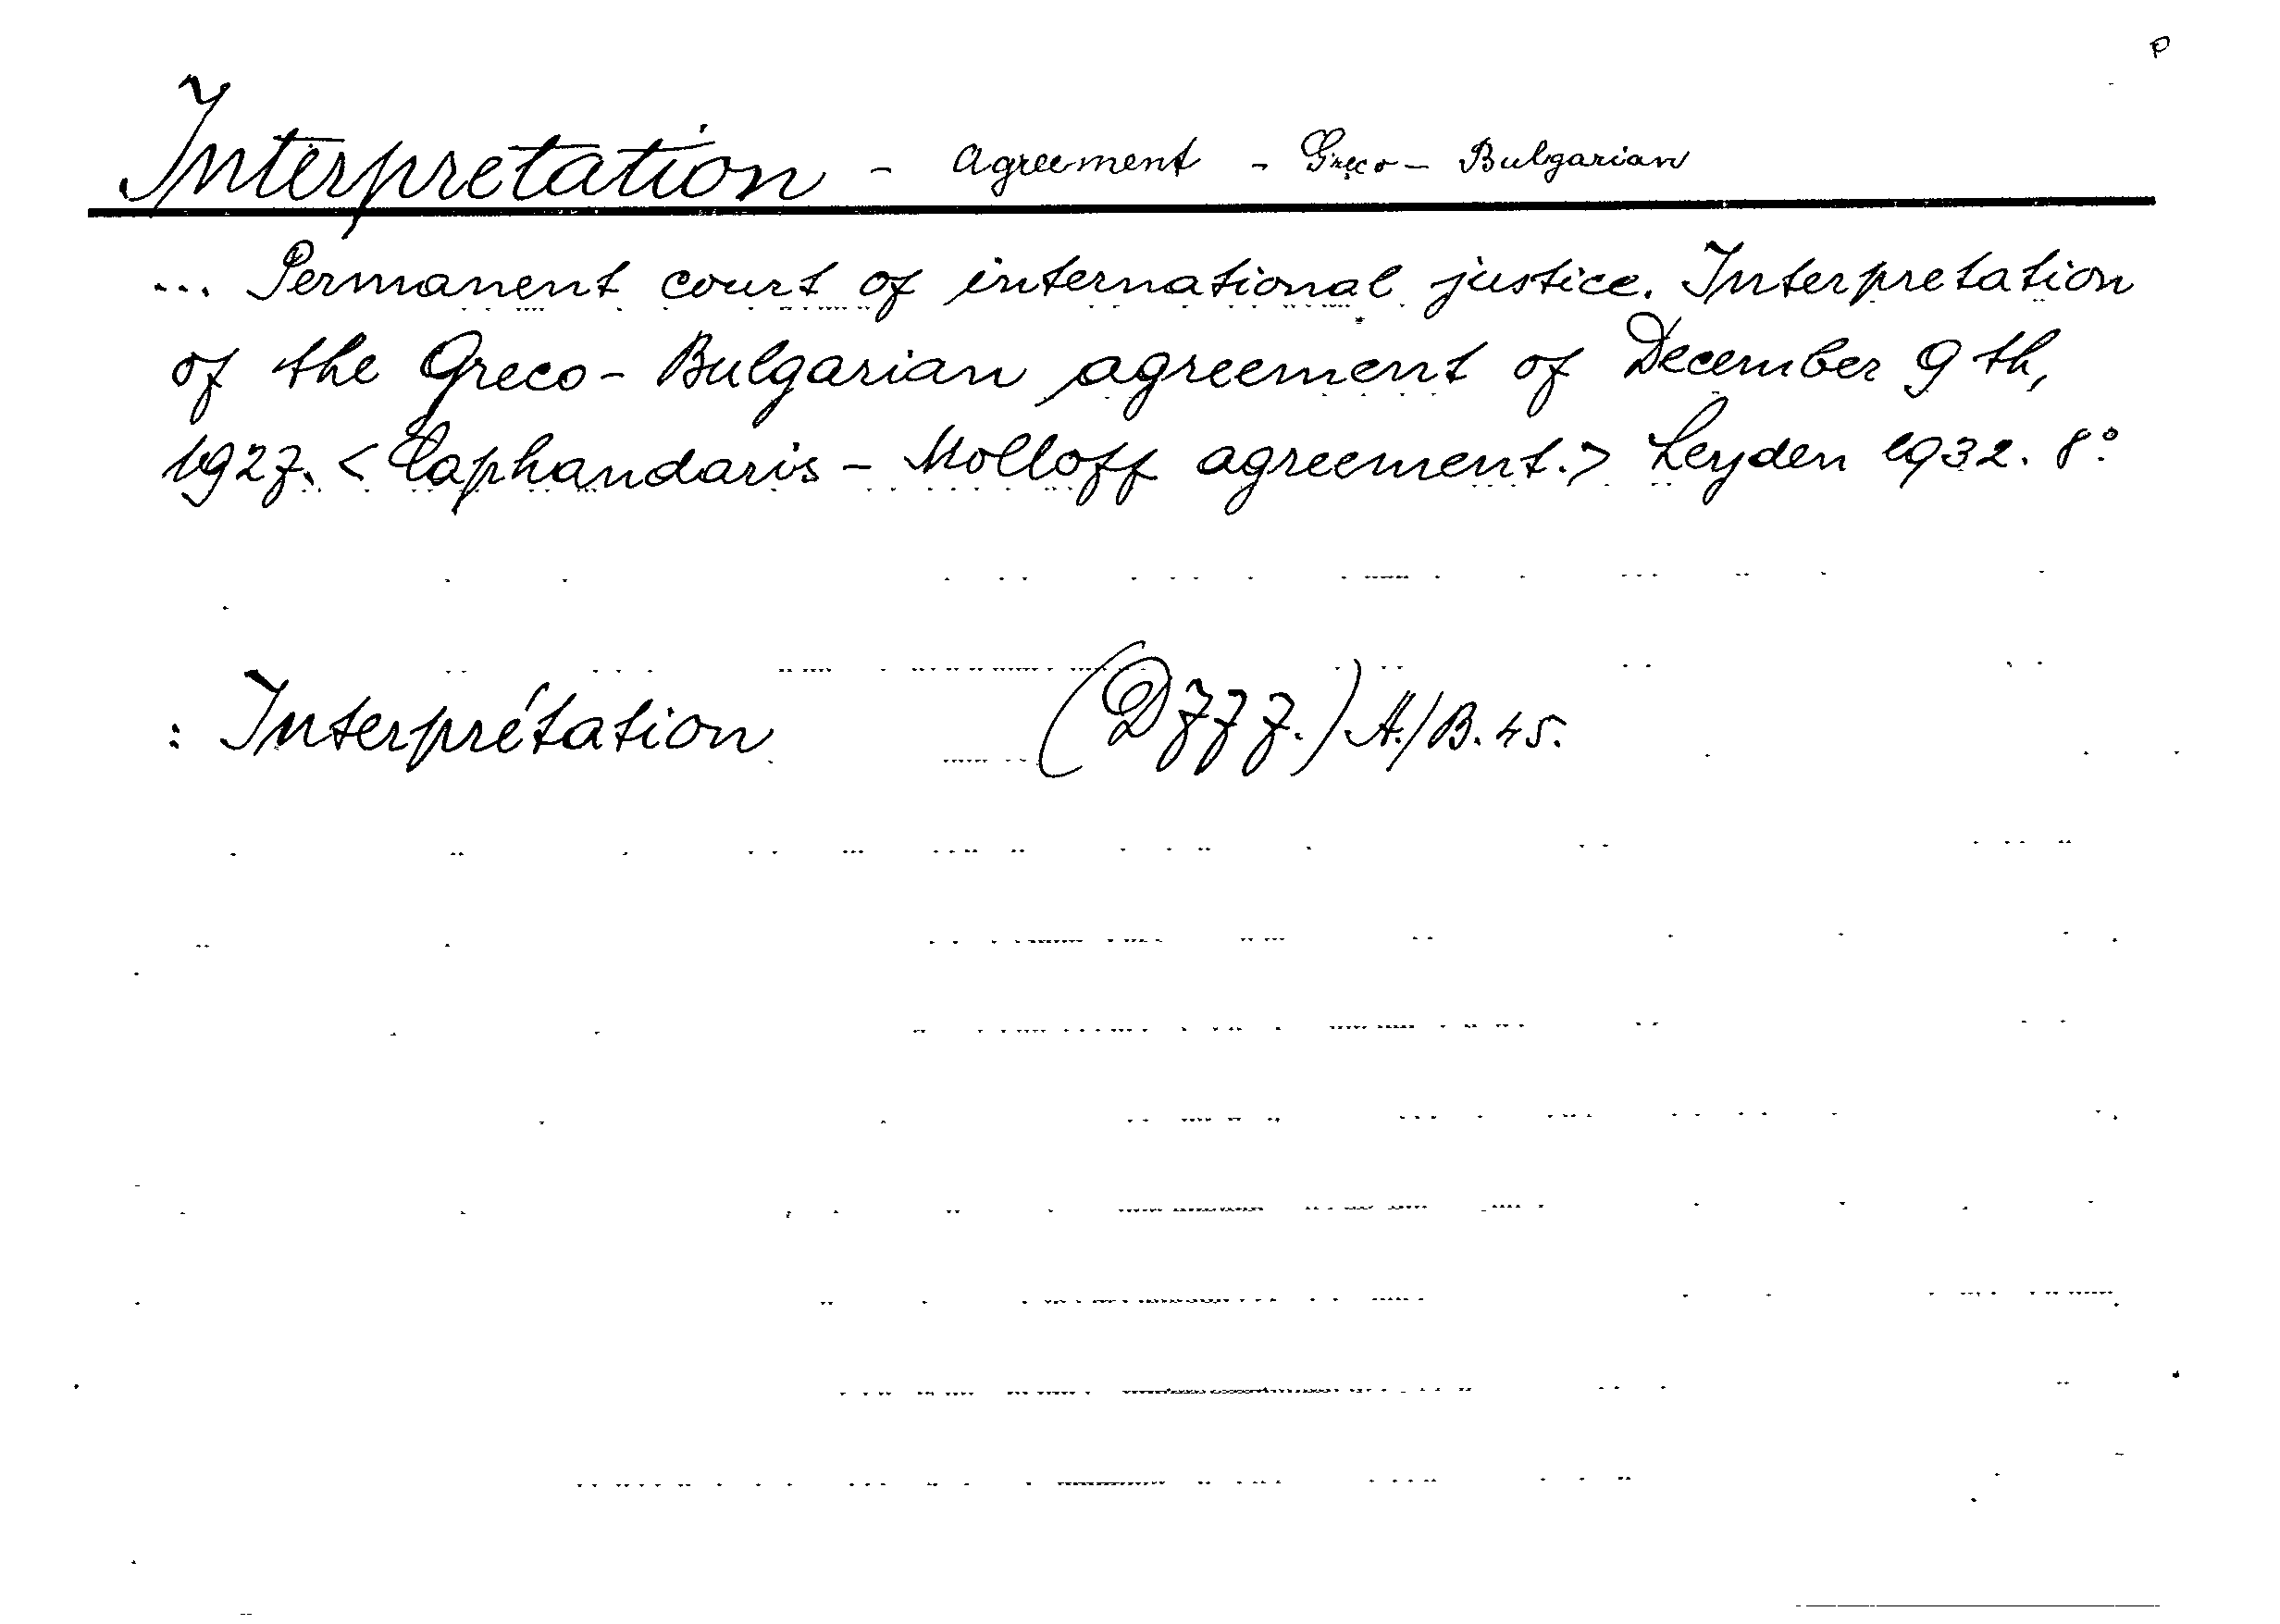 P
Interpretation - Agreement - Greco - Bulgarian
... Permanent court of international justice. Interpretation
of the Greco - Bulgarian agreement of December 9th,
1927. < Caphandaris - Molloff agreement. > Leyden 1932. 8°
: Interprétation (DJJJ.) A./B. 45.